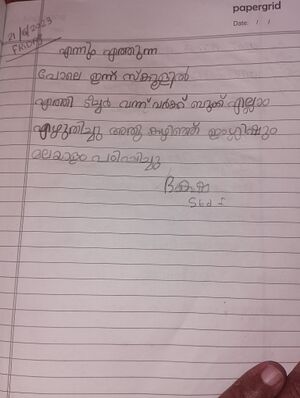 papergrid
Date: / /
FRIDAY
എന്നും എത്തുന്ന
പോലെ ഇന്ന് സ്ക്കൂളിൽ
എത്തി ടീച്ചർ വന്ന് വർക്ക് ബുക്ക് എല്ലാം
എഴുതിച്ചു അതു കഴിഞ്ഞ് ഇംഗ്ലീഷും
മലയാളം പഠിപ്പിച്ചു
Std I